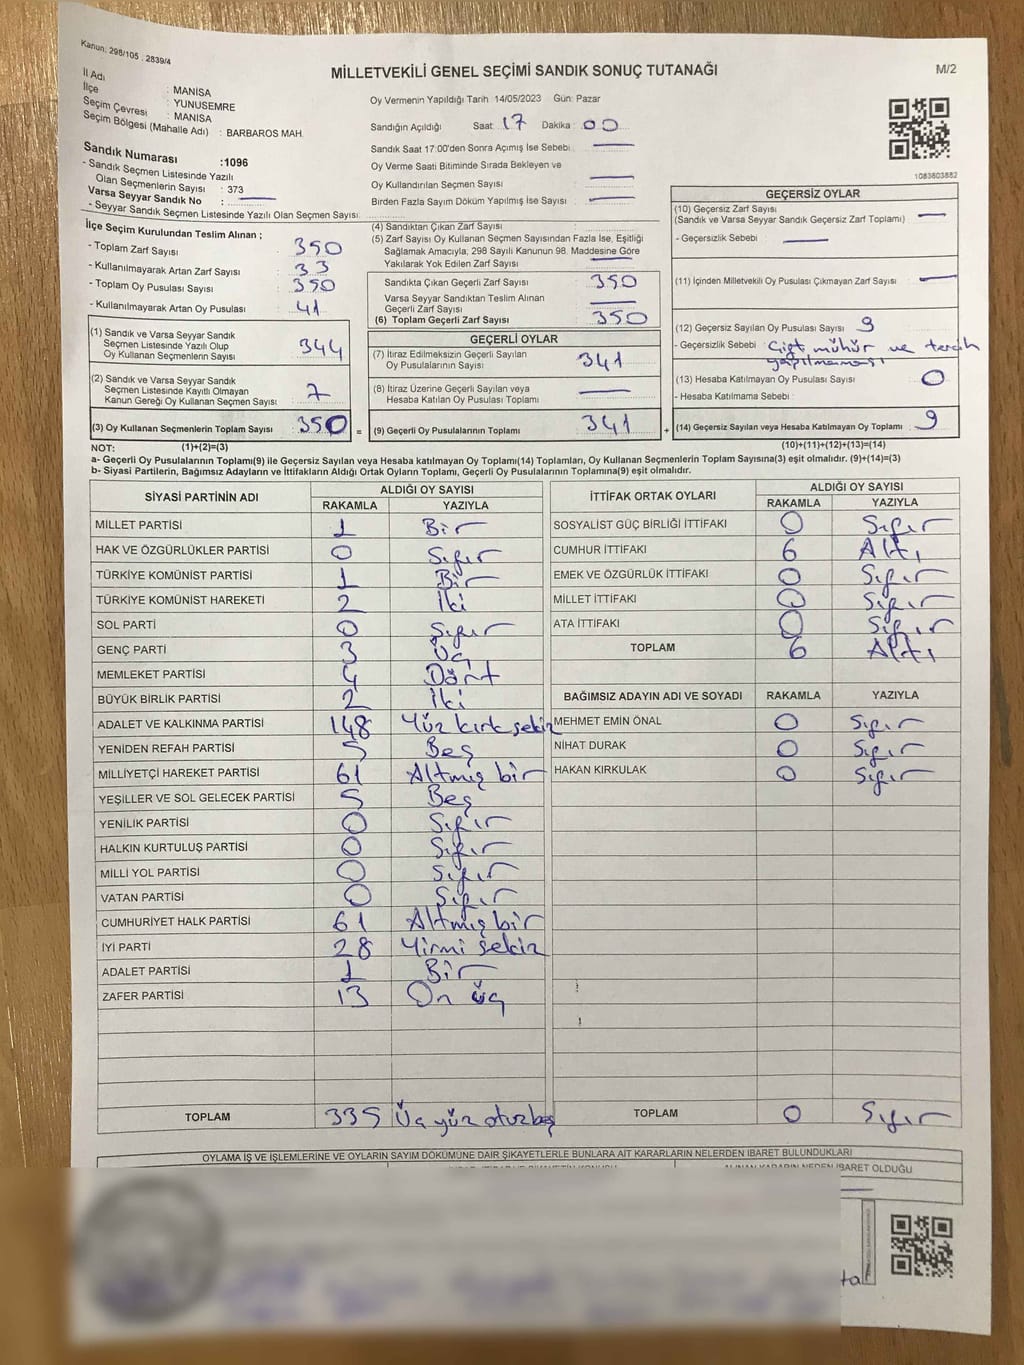 Kanun: 298/105 : 2839/4
MİLLETVEKİLİ GENEL SEÇİMİ SANDIK SONUÇ TUTANAĞI
M/2
İl Adı : MANİSA
İlçe : YUNUSEMRE
Seçim Çevresi : MANİSA
Seçim Bölgesi (Mahalle Adı) : BARBAROS MAH.
Sandık Numarası :1096
- Sandık Seçmen Listesinde Yazılı
Olan Seçmenlerin Sayısı : 373
Varsa Seyyar Sandık No :
- Seyyar Sandık Seçmen Listesinde Yazılı Olan Seçmen Sayısı:
Oy Vermenin Yapıldığı Tarih 14/05/2023 Gün: Pazar
Sandığın Açıldığı Saat : 17 Dakika : 00
Sandık Saat 17:00'den Sonra Açımış İse Sebebi
Oy Verme Saati Bitiminde Sırada Bekleyen ve
Oy Kullandırılan Seçmen Sayısı
Birden Fazla Sayım Döküm Yapılmış İse Sayısı :
1083603882
İlçe Seçim Kurulundan Teslim Alınan ;
- Toplam Zarf Sayısı : 350
- Kullanılmayarak Artan Zarf Sayısı : 33
- Toplam Oy Pusulası Sayısı : 350
- Kullanılmayarak Artan Oy Pusulası : 41
(1) Sandık ve Varsa Seyyar Sandık
Seçmen Listesinde Yazılı Olup
Oy Kullanan Seçmenlerin Sayısı : 344
(2) Sandık ve Varsa Seyyar Sandık
Seçmen Listesinde Kayıtlı Olmayan
Kanun Gereği Oy Kullanan Seçmen Sayısı : 7
(3) Oy Kullanan Seçmenlerin Toplam Sayısı : 350 =
(4) Sandıktan Çıkan Zarf Sayısı :
(5) Zarf Sayısı Oy Kullanan Seçmen Sayısından Fazla İse, Eşitliği
Sağlamak Amacıyla, 298 Sayılı Kanunun 98. Maddesine Göre
Yakılarak Yok Edilen Zarf Sayısı
Sandıkta Çıkan Geçerli Zarf Sayısı : 350
Varsa Seyyar Sandıktan Teslim Alınan
Geçerli Zarf Sayısı :
(6) Toplam Geçerli Zarf Sayısı : 350
GEÇERLİ OYLAR
(7) İtiraz Edilmeksizin Geçerli Sayılan
Oy Pusulalarının Sayısı : 341
(8) İtiraz Üzerine Geçerli Sayılan veya
Hesaba Katılan Oy Pusulası Toplamı :
(9) Geçerli Oy Pusulalarının Toplamı : 341 +
GEÇERSİZ OYLAR
(10) Geçersiz Zarf Sayısı
(Sandık ve Varsa Seyyar Sandık Geçersiz Zarf Toplamı) :
- Geçersizlik Sebebi :
(11) İçinden Milletvekili Oy Pusulası Çıkmayan Zarf Sayısı :
(12) Geçersiz Sayılan Oy Pusulası Sayısı : 9
- Geçersizlik Sebebi : Çift mühür ve tercih
yapılmaması
(13) Hesaba Katılmayan Oy Pusulası Sayısı : 0
- Hesaba Katılmama Sebebi :
(14) Geçersiz Sayılan veya Hesaba Katılmayan Oy Toplamı : 9
NOT: (1)+(2)=(3) (10)+(11)+(12)+(13)=(14)
a- Geçerli Oy Pusulalarının Toplamı(9) ile Geçersiz Sayılan veya Hesaba katılmayan Oy Toplamı(14) Toplamları, Oy Kullanan Seçmenlerin Toplam Sayısına(3) eşit olmalıdır. (9)+(14)=(3)
b- Siyasi Partilerin, Bağımsız Adayların ve İttifakların Aldığı Ortak Oyların Toplamı, Geçerli Oy Pusulalarının Toplamına(9) eşit olmalıdır.
SİYASİ PARTİNİN ADI ALDIĞI OY SAYISI
RAKAMLA YAZIYLA
MİLLET PARTİSİ 1 Bir
HAK VE ÖZGÜRLÜKLER PARTİSİ 0 Sıfır
TÜRKİYE KOMÜNİST PARTİSİ 1 Bir
TÜRKİYE KOMÜNİST HAREKETİ 2 İki
SOL PARTİ 0 Sıfır
GENÇ PARTİ 3 Üç
MEMLEKET PARTİSİ 4 Dört
BÜYÜK BİRLİK PARTİSİ 2 İki
ADALET VE KALKINMA PARTİSİ 148 Yüz kırk sekiz
YENİDEN REFAH PARTİSİ 5 Beş
MİLLİYETÇİ HAREKET PARTİSİ 61 Altmış bir
YEŞİLLER VE SOL GELECEK PARTİSİ 5 Beş
YENİLİK PARTİSİ 0 Sıfır
HALKIN KURTULUŞ PARTİSİ 0 Sıfır
MİLLİ YOL PARTİSİ 0 Sıfır
VATAN PARTİSİ 0 Sıfır
CUMHURİYET HALK PARTİSİ 61 Altmış bir
İYİ PARTİ 28 Yirmi sekiz
ADALET PARTİSİ 1 Bir
ZAFER PARTİSİ 13 On üç
TOPLAM 335 Üç yüz otuzbeş
İTTİFAK ORTAK OYLARI ALDIĞI OY SAYISI
RAKAMLA YAZIYLA
SOSYALİST GÜÇ BİRLİĞİ İTTİFAKI 0 Sıfır
CUMHUR İTTİFAKI 6 Altı
EMEK VE ÖZGÜRLÜK İTTİFAKI 0 Sıfır
MİLLET İTTİFAKI 0 Sıfır
ATA İTTİFAKI 0 Sıfır
TOPLAM 6 Altı
BAĞIMSIZ ADAYIN ADI VE SOYADI RAKAMLA YAZIYLA
MEHMET EMİN ÖNAL 0 Sıfır
NİHAT DURAK 0 Sıfır
HAKAN KIRKULAK 0 Sıfır
TOPLAM 0 Sıfır
OYLAMA İŞ VE İŞLEMLERİNE VE OYLARIN SAYIM DÖKÜMÜNE DAİR ŞİKAYETLERLE BUNLARA AİT KARARLARIN NELERDEN İBARET BULUNDUKLARI
ALINAN KARARIN NEDEN İBARET OLDUĞU
ta